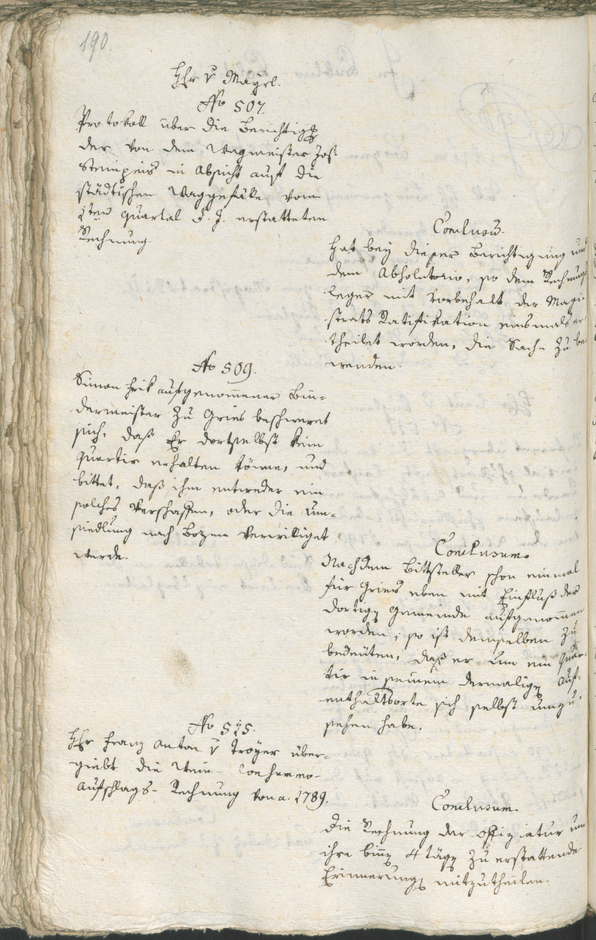 190.
Hr v Mayrl.
No 507.
Protokoll über die Berichtigg
der von dem Wagmeister Jos
Steinpeis in Absicht auf die
städtischen Waggefälle vom
1ten Quartal d. J. erstatteten
Rechnung.
Conclusum.
Hat bey dieser Berichtigung und
dem Absolutorio, so dem Rechnungs
leger mit Vorbehalt der Magi-
strats Ratifikation einsmals er
theilet worden, die Sache zu be
wenden.
No 509.
Simon aufgenommener Bin-
dermeister zu Gries beschweret
sich, daß Er dortselbst kein
Quartir erhalten könne, und
bittet, daß ihm entweder ein
solches verschaffen, oder die Um-
siedlung nach Bozen verwilliget
werde.
Conclusum.
Nachdem Bittsteller schon einmal
für Gries eben mit Einfluß der
dortigen Gemeinde aufgenommen
worden; so ist demselben zu
bedeuten, daß er um ein Quar-
tir in seinem dermaligen Auf-
enthaltsorte sich selbst umzu-
sehen habe.
No 515.
Hr Franz Anton v Troyer über-
giebt die Wein-
Aufschlags-Rechnung von a. 1789.
Conclusum.
Die Rechnung der Offiziatur um
ihre binnen 14 tägig zu erstattende
Erinnerung mitzutheilen.